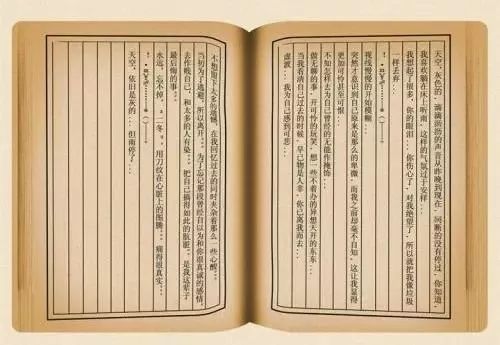 天空，灰色的，滴滴沥沥的声音从昨晚到现在，间断的没有停过，你知道，
我喜欢躺在床上听雨，这样的气氛过于安样…
我想起了很多，你的眼泪…你伤心了，对我绝望了，所以就把我像垃圾
一样丢弃…
视线慢慢的开始模糊…
突然才意识到自己原来是那么的卑微，而我之前却毫不自知，这让我显得
更加可怜甚至可恨…
不知怎样去为自己曾经的无能作掩饰…
做无聊的事，开可怜的玩笑，想一些不着办的异想天开的东东…
当我看清自己过去的时候，早已物是人非，你已离我而去…
虚寂…我为自己感到可悲…
不想留下太多的遗憾，在我回忆过去的同时夹杂着一些心醒…
当初为了逃避，所以离开…为了忘记那段曾经自以为和你很真诚的感情，
去作贱自己，和太多的人有染…把自己搞得如此的肮脏，是我这辈子
最后悔的事…
永远，忘不掉，"二冬"，用刀纹在心脏上的图腾…痛得很真实…
天空，依旧是灰的…但雨停了…